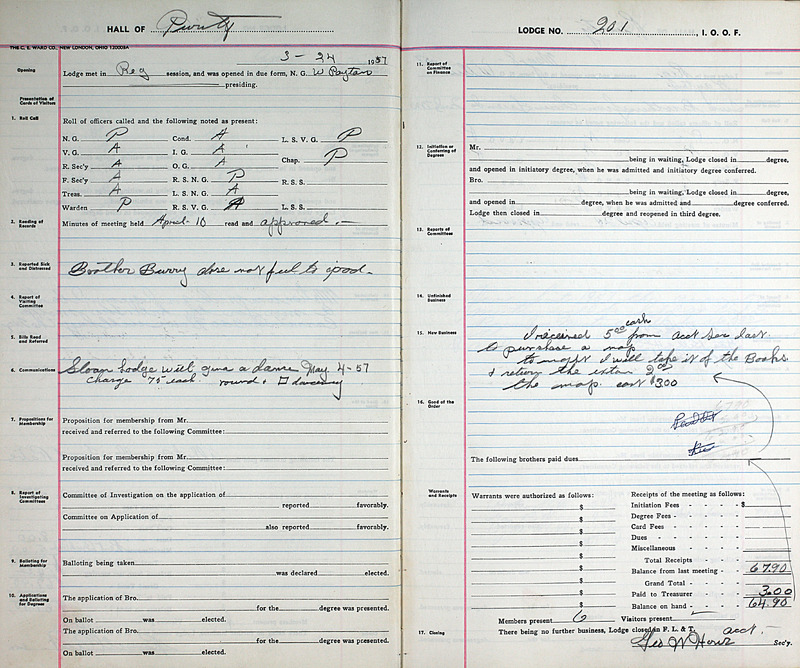 HALL OF Purity
THE C. E. WARD CO., NEW LONDON, OHIO
3 - 24 1957
Opening
Lodge met in Reg session, and was opened in due form, N. G. W Paytan
presiding.
Presentation of Cards of Visitors
1. Roll Call
Roll of officers called and the following noted as present:
N. G. P Cond. A L. S. V. G. P
V. G. A I. G. A Chap. P
R. Sec'y A O. G. A
F. Sec'y A R. S. N. G. P R. S. S.
Treas. A L. S. N. G. A
Warden P R. S. V. G. A L. S. S.
2. Reading of Records
Minutes of meeting held April-10 read and approved.
3. Reported Sick and Distressed
Brother Burry dose not feel to good.
4. Report of Visiting Committee
5. Bills Read and Referred
6. Communications
Sloan Lodge will give a dance May 4-57
Charge 75 each round & □ dancing
7. Propositions for Membership
Proposition for membership from Mr.
received and referred to the following Committee:
Proposition for membership from Mr.
received and referred to the following Committee:
8. Report of Investigating Committees
Committee of Investigation on the application of
reported favorably.
Committee on Application of
also reported favorably.
9. Balloting for Membership
Balloting being taken
was declared elected.
10. Applications and Balloting for Degrees
The application of Bro.
for the degree was presented.
On ballot was elected.
The application of Bro.
for the degree was presented.
On ballot was elected.
LODGE NO. 201, I. O. O. F.
11. Report of Committee on Finance
12. Initiation or Conferring of Degrees
Mr.
being in waiting, Lodge closed in degree,
and opened in initiatory degree, when he was admitted and initiatory degree conferred.
Bro.
being in waiting, Lodge closed in degree,
and opened in degree, when he was admitted and degree conferred.
Lodge then closed in degree and reopened in third degree.
13. Reports of Committees
14. Unfinished Business
15. New Business
cash
I received 5 00 from acct Sec last
to purchase a mop
to night I will take it of the Books
& return the extra 2 00
the mop. cost $3 00
16. Good of the Order
The following brothers paid dues
Warrants and Receipts
Warrants were authorized as follows:
$
$
$
$
$
$
$
$
$
Receipts of the meeting as follows:
Initiation Fees $
Degree Fees
Card Fees
Dues
Miscellaneous
Total Receipts
Balance from last meeting 67.90
Grand Total
Paid to Treasurer 3.00
Balance on hand 64.90
Members present 6 Visitors present
17. Closing
There being no further business, Lodge closed in F. L. & T.
acct.
Geo W Howe Sec'y.